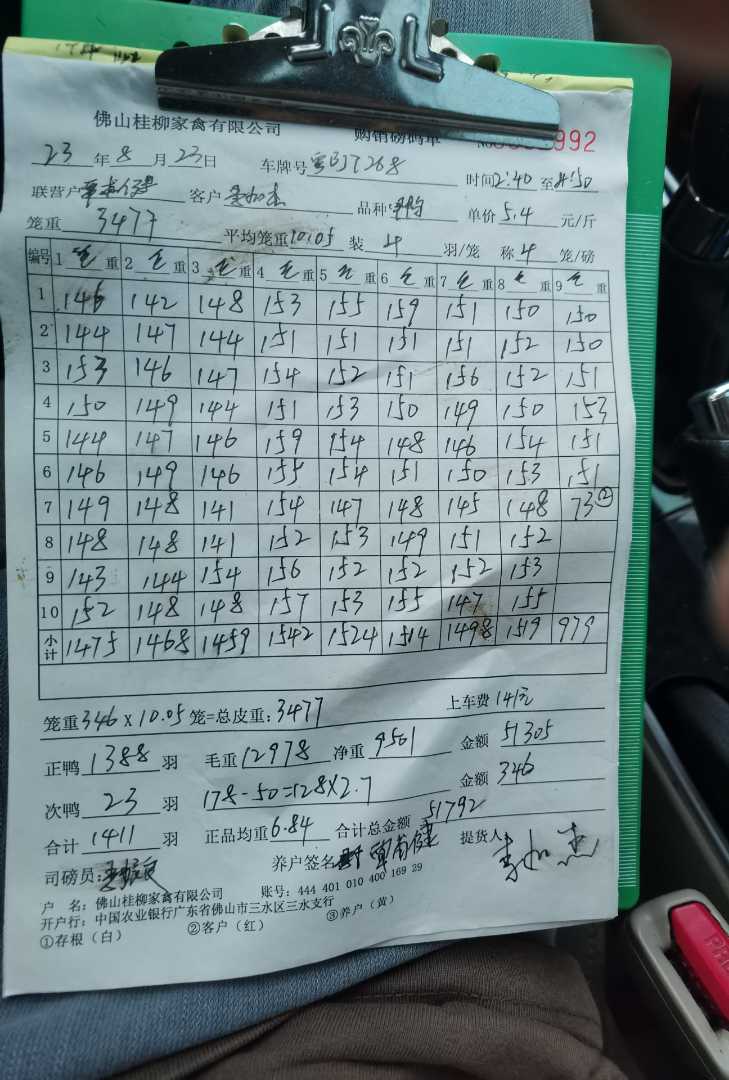 佛山桂柳家禽有限公司 购销磅码单 992
23 年 8 月 23 日 车牌号 时间 2:40 至 4:50
联营户 客户 品种 单价 5.4 元/斤
笼重 3477 平均笼重 10.05 装 4 羽/笼 称 4 笼/磅
编号 1 毛 重 2 毛 重 3 毛 重 4 毛 重 5 毛 重 6 毛 重 7 毛 重 8 毛 重 9 毛 重
1 146 142 148 153 155 159 151 150 150
2 144 147 144 151 151 151 151 152 150
3 153 146 147 154 152 151 156 152 151
4 150 149 144 151 153 150 149 150 153
5 144 147 146 159 154 148 146 154 151
6 146 149 146 155 154 151 150 153 151
7 149 148 141 154 147 148 145 148 73②
8 148 148 141 152 153 149 151 152
9 143 144 154 156 152 152 152 153
10 152 148 148 157 153 155 147 155
小计 1475 1468 1459 1542 1524 1514 1498 1519 979
笼重 346 x 10.05 笼=总皮重: 3477 上车费 141元
正鸭 1388 羽 毛重 12978 净重 9501 金额 51305
次鸭 23 羽 178-50=128x2.7 金额 346
合计 1411 羽 正品均重 6.84 合计总金额 51792
司磅员: 养户签名 提货人
户 名: 佛山桂柳家禽有限公司 账号: 444 401 010 400 169 29
开户行: 中国农业银行广东省佛山市三水区三水支行
①存根（白） ②客户（红） ③养户（黄）